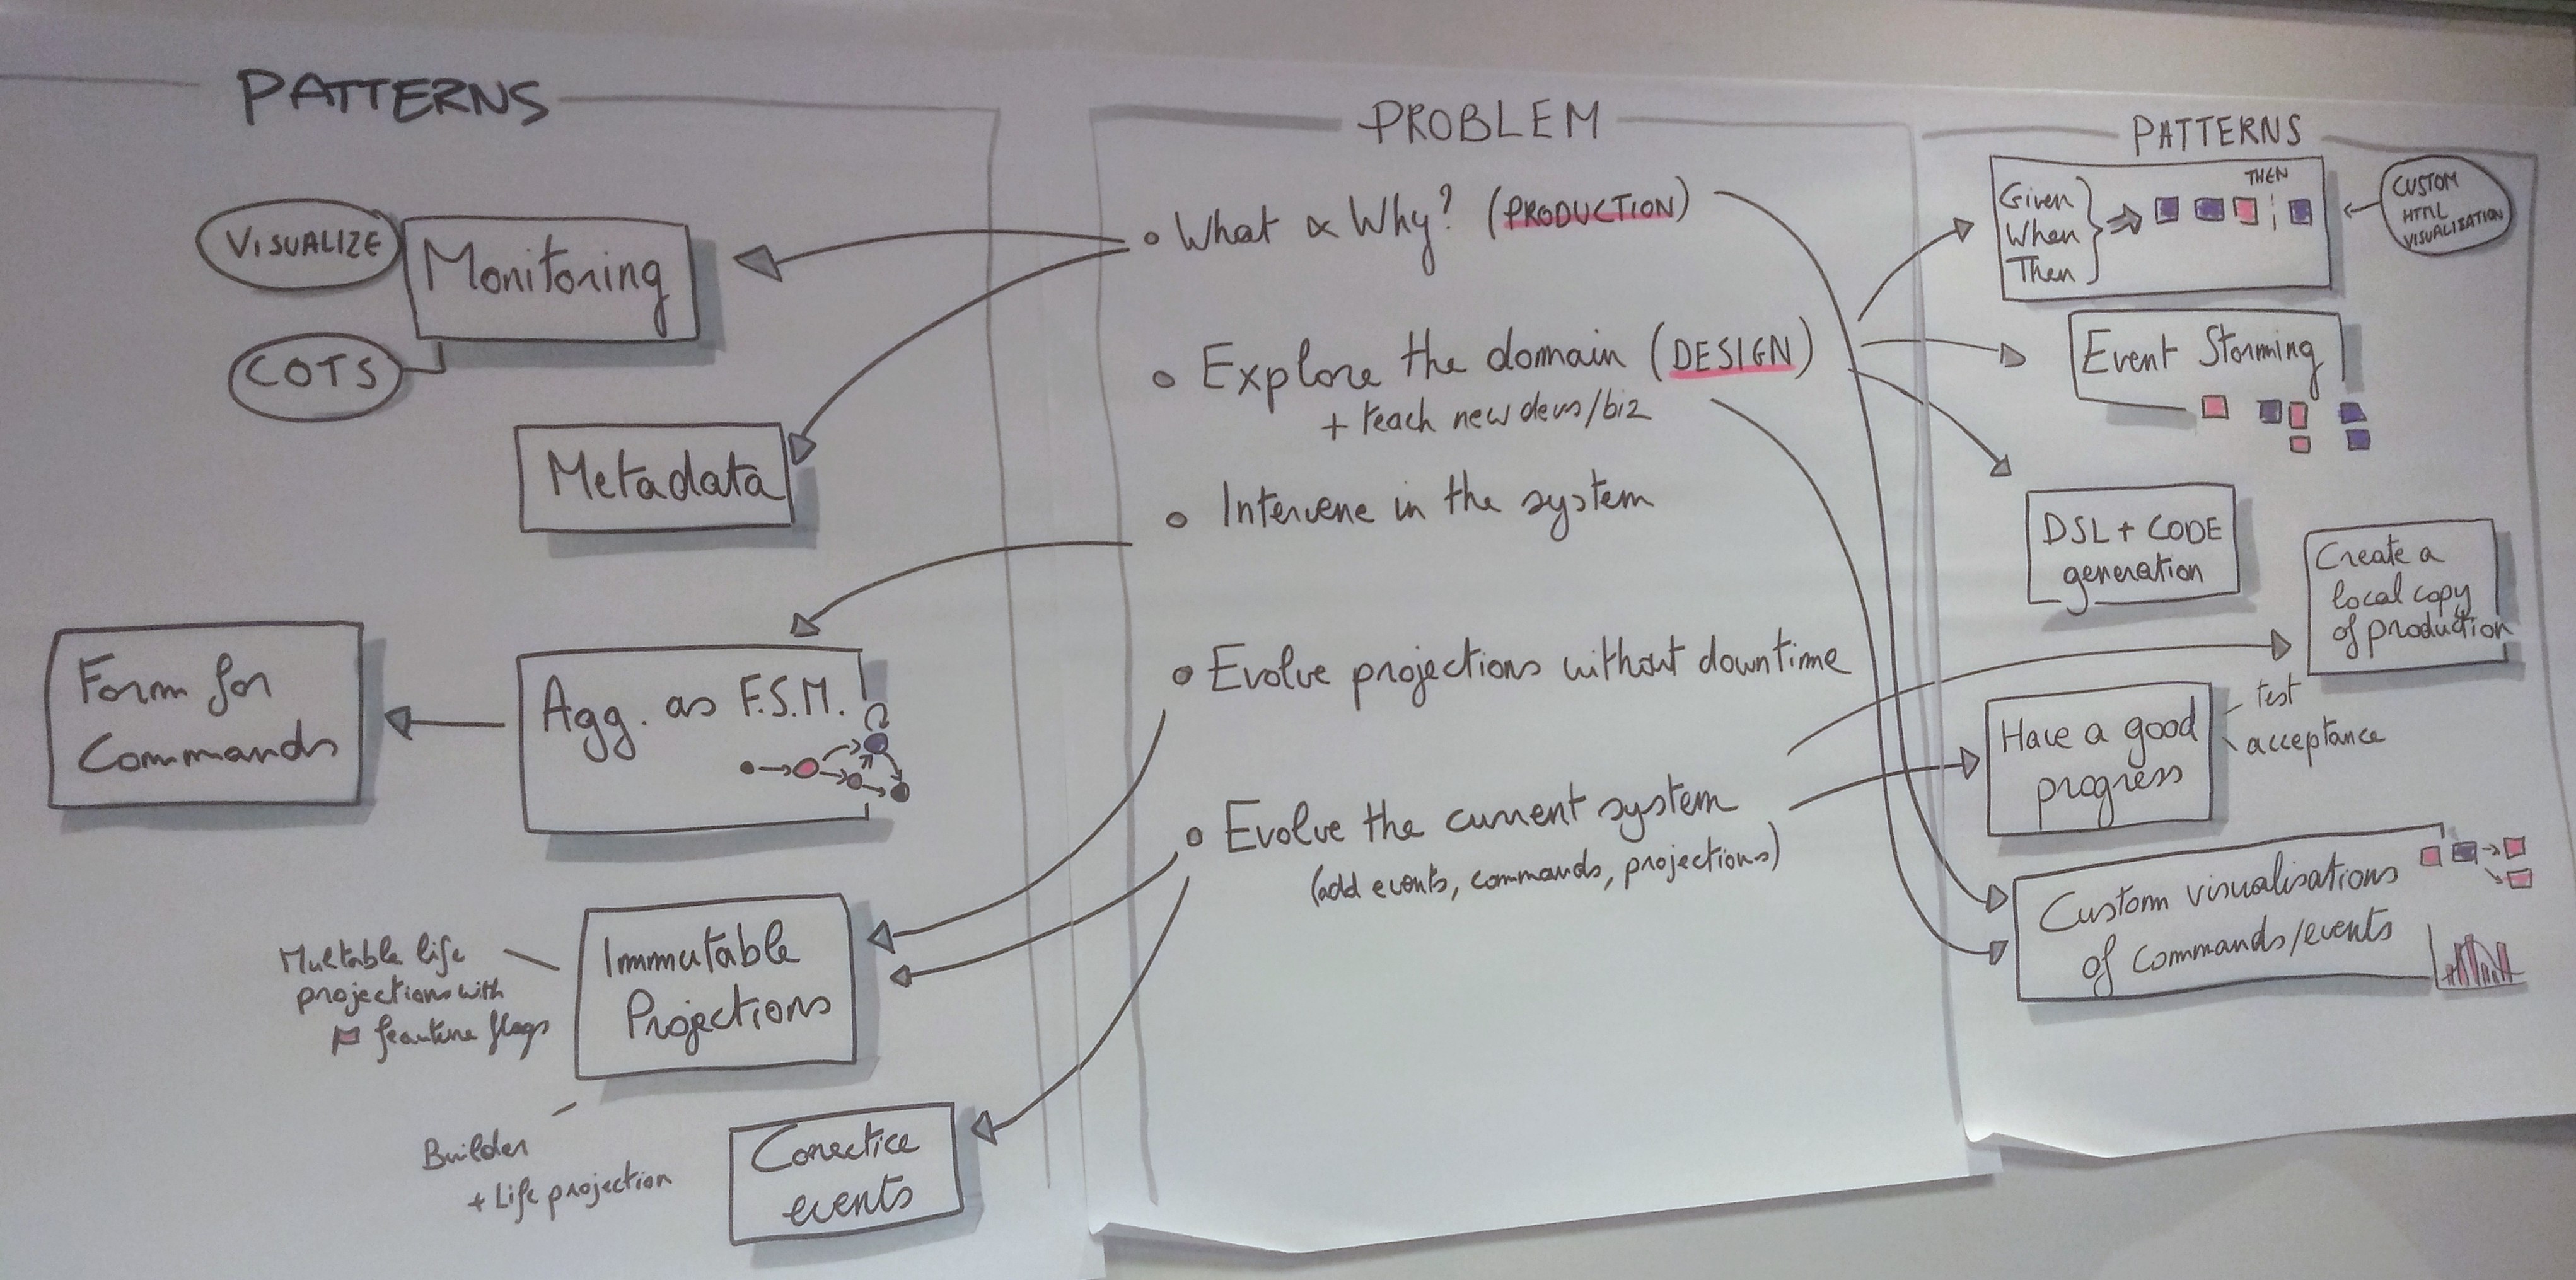 PATTERNS
VISUALIZE
Monitoring
COTS
Metadata
Form for
Commands
Agg. as F.S.M.
Immutable
Projections
Multable life
projections with
feature flags
Builder
+ Life projection
Corectice
events
PROBLEM
• What & Why? (PRODUCTION)
• Explore the domain (DESIGN)
+ teach new devs/biz
• Intervene in the system
• Evolve projections without downtime
• Evolve the current system
(add events, commands, projections)
PATTERNS
Given
When
Then
THEN
CUSTOM
HTML
VISUALISATION
Event Storming
DSL + CODE
generation
Create a
local copy
of production
Have a good
progress
test
acceptance
Custom visualisations
of Commands/events